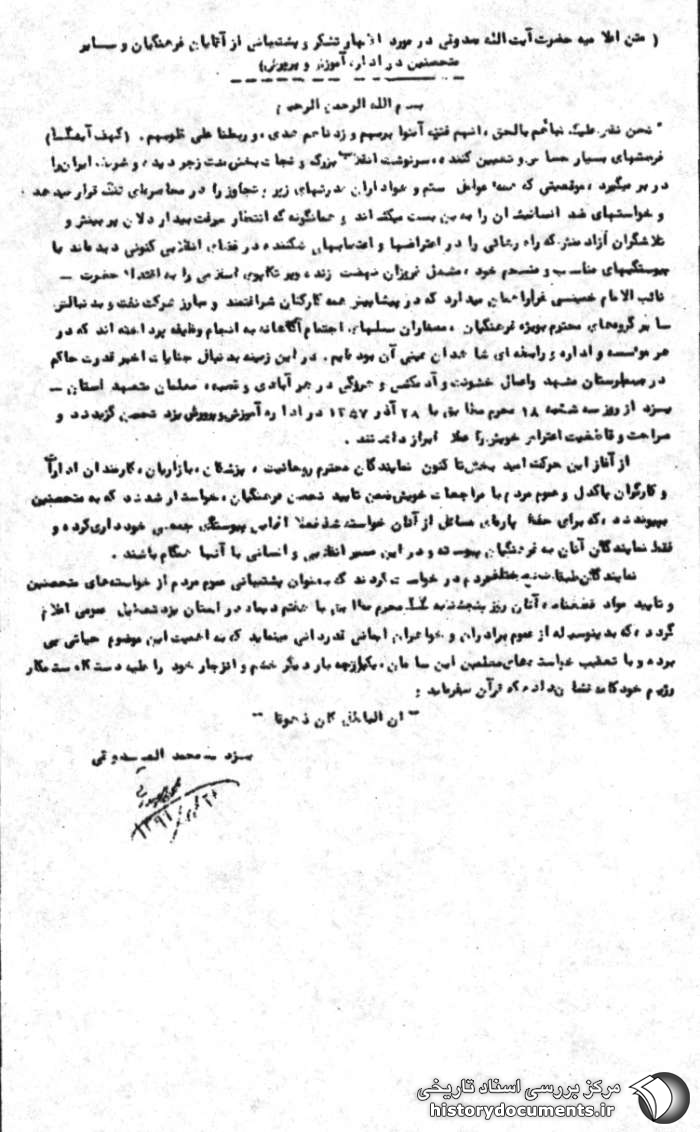 ( متن اعلامیه حضرت آیت الله صدوقی در مورد اظهار تشکر و پشتیبانی از آقایان فرهنگیان و سایر
متحصنین در اداره آموزش و پرورش)
بسم الله الرحمن الرحیم
" نحن نقص علیک نباهم بالحق ، انهم فتیة آمنوا بربهم و زدناهم هدی ، و ربطنا علی قلوبهم . (کهف آیه
فرصتهای بسیار حساس و تعیین کننده ، سرنوشت انقلاب بزرگ و نجات بخش ملت زجر دیده و شریف ایران را
در بر میگیرد ، موقعیتی که همه عوامل ستم و هواداران قدرتهای زیر و تجاوز را در محاصره‌ای تنگ قرار میدهد
و خواستهای ضد انسانیشان را به بن بست میکشاند و همانگونه که انتظار میرفت بیدار دلان پر بینش و
تلاشگران آزاد منش که راه رهائی را در اعتراضها و اعتصابهای شکننده در فضای انقلابی کنونی دیده‌اند با
پیوستگیهای مناسب و منسجم خود ، مشعل فروزان نهضت زنده و پر تکاپوی اسلامی را به اقتدای حضرت –
نائب الامام خمینی فرا راهمان میدارد که در پیشاپیش همه کارکنان شرافتمند و مبارز شرکت نفت و بدنبالش
سایر گروههای محترم بویژه فرهنگیان ، معماران نسلهای اجتماع آگاهانه به انجام وظیفه پرداخته اند که در
هر مؤسسه و اداره و رابطه‌ای شاهدان عینی آن بوده‌ایم . در این زمینه بدنبال جنایات اخیر قدرت حاکم
در بیمارستان مشهد و اعمال خشونت و آدمکشی و در هر آبادی و قصبه ، معلمان متعهد استان –
یزد از روز سه شنبه ۱۸ محرم مطابق با ۲۸ آذر ۱۳۵۷ در اداره آموزش و پرورش یزد تحصن گزیدند و
صراحت و قاطعیت اعتراض خویش را عملا ابراز داشتند .
از آغاز این حرکت امید بخش تا کنون نمایندگان محترم روحانیت ، پزشکان ، بازاریان ، کارمندان ادارات
و کارگران پاکدل و عموم مردم با مراجعات خویش ضمن تایید تحصن فرهنگیان ، خواستار شدند که به متحصنین
بپیوندند ، که برای حفظ پاره‌ای مسائل از آنان خواسته شد فعلا از این پیوستگی جمعی خودداری کرده و
فقط نمایندگان آنان به فرهنگیان پیوسته و در این مسیر انقلابی و انسانی با آنها همگام باشند .
نمایندگان طبقات مختلف مردم در خواست کردند که بعنوان پشتیبانی عموم مردم از خواسته‌های متحصنین
و تایید مواد قطعنامه آنان روز پنجشنبه ۲۷ محرم مطابق با هفتم دیماه در استان یزد تعطیل عمومی اعلام
گردد ، که بدینوسیله از عموم برادران و خواهران ایمانی قدردانی مینماید که به اهمیت این موضوع حیاتی پی
برده و با تعقیب خواسته‌های معلمین این سامان ، یکپارچه بار دیگر خشم و انزجار خود را علیه دستگاه ستمکار
رژیم خودکامه نشان داده که قرآن میفرماید :
" ان الباطل کان زهوقا "
یزد – محمد الصدوقی
مرکز بررسی اسناد تاریخی
historydocuments.ir